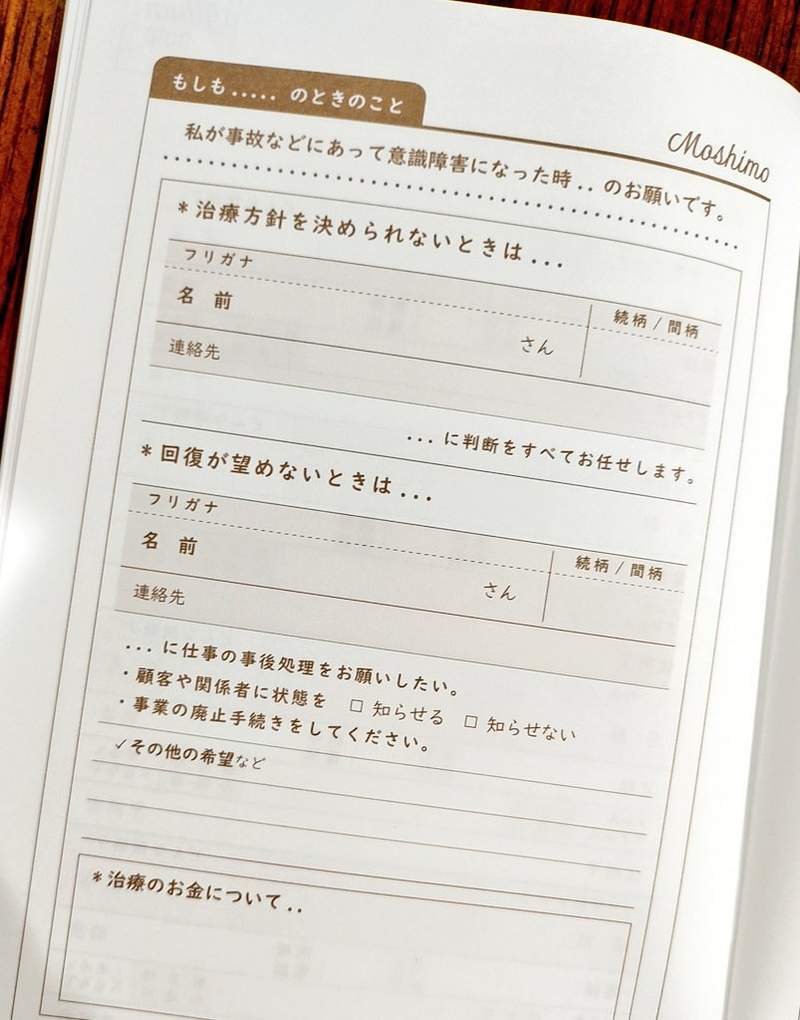 もしも ..... のときのこと
Moshimo
私が事故などにあって意識障害になった時 .. のお願いです。
＊治療方針を決められないときは ...
フリガナ
続柄 / 間柄
名 前
さん
連絡先
... に判断をすべてお任せします。
＊回復が望めないときは ...
フリガナ
続柄 / 間柄
名 前
さん
連絡先
... に仕事の事後処理をお願いしたい。
・顧客や関係者に状態を □ 知らせる □ 知らせない
・事業の廃止手続きをしてください。
✓その他の希望など
＊治療のお金について ..